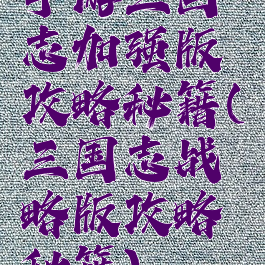 手游三国
志加强版
攻略秘籍(
三国志战
略版攻略
秘籍)